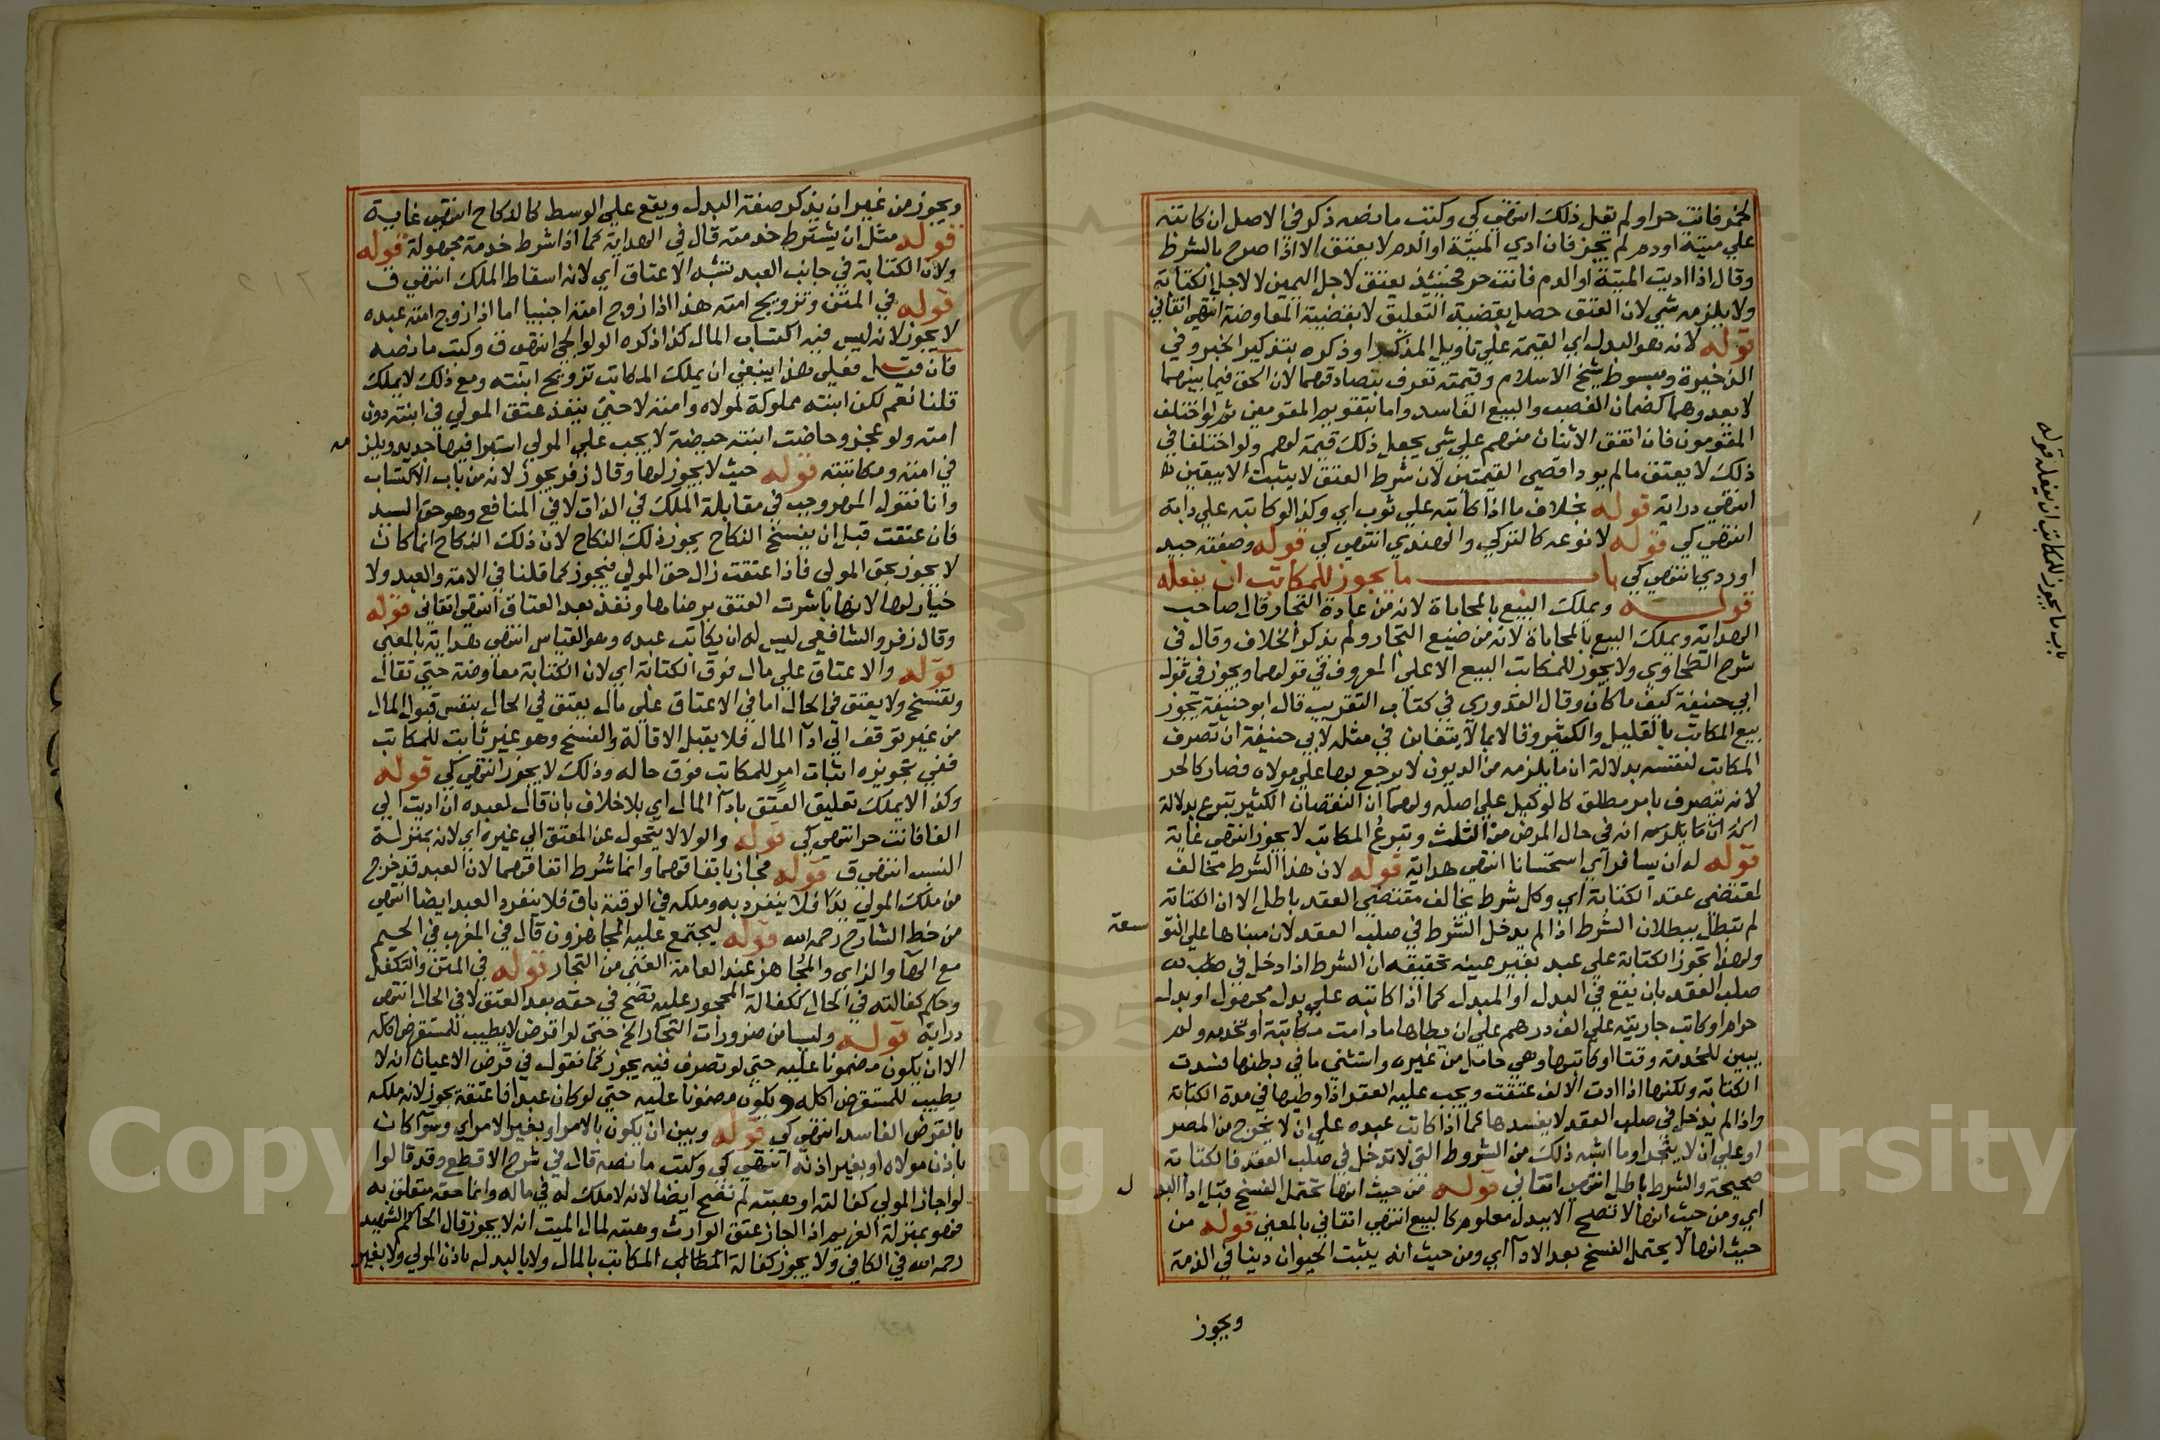 الخمر فانت حر او لم تقل ذلك انتهى كي وكتب ما نصه ذكر في الاصل ان كاتبته
علي ميتة او دم لم يجز فان ادي الميتة او الدم لا يعتق الا اذا صرح بالشرط
وقال اذا اديت الميتة او الدم فانت حر فحينئذ يعتق لاجل اليمين لا لاجل الكتابة
ولا يلزمه شي لان العتق حصل بقضية التعليق لا بقضية المعاوضة انتهي اتقاني
قوله لانه هو البدل اي القيمة علي تاويل المذكور او ذكره بتذكير الخبر وفي
الذخيرة ومبسوط شيخ الاسلام وقيمته تعرف بتصادقهما لان الحق فيما بينهما
لا يعدوهما كضمان الغصب والبيع الفاسد واما بتقويم المقومين ثم لو اختلف
المقومون فان اتفق الاثنان منهم علي شي يجعل ذلك قيمة لهم ولو اختلفا في
ذلك لا يعتق ما لم يود اقصي القيمتين لان شرط العتق لا يثبت الا بيقين
انتهي دراية قوله بخلاف ما اذا كاتبه علي ثوب اي وكذا لو كاتبه علي دابة
انتهي كي قوله لا نوعه كالتركي والهندي انتهي كي قوله وصفته جيد
او ردي انتهي كي باب ما يجوز للمكاتب ان يفعله
قوله ويملك البيع بالمحاباة لانه من عادة التجار قال صاحب
الهداية ويملك البيع بالمحاباة لانه من صنيع التجار ولم يذكر الخلاف وقال في
شرح الطحاوي ولا يجوز للمكاتب البيع الا علي المعروف في قولهما ويجوز في قول
ابي حنيفة كيف ما كان وقال القدوري في كتاب التقريب قال ابو حنيفة يجوز
بيع المكاتب بالقليل والكثير وقالا بما لا يتغابن في مثله لابي حنيفة ان تصرف
المكاتب لنفسه بدلالة ان ما يلزمه من الديون لا يرجع بها علي مولاه فصار كالحر
لانه يتصرف بامر مطلق كالوكيل علي اصله ولهما ان النقصان الكثير تبرع بدلالة
انه في حال المرض من الثلث وتبرع المكاتب لا يجوز انتهي غاية
قوله له ان يسافر اي استحسانا انتهي هداية قوله لان هذا الشرط مخالف
لمقتضي عقد الكتابة اي وكل شرط يخالف مقتضي العقد باطل الا ان الكتابة
لم تبطل ببطلان الشرط اذا لم يدخل الشرط في صلب العقد لان مبناها علي التو
سعة
ولهذا تجوز الكتابة علي عبد بغير عينه تحقيقه ان الشرط اذا دخل في
صلب العقد بان يقع في البدل او المبدل كما اذا كاتبه علي بدل مجهول او بدل
حرام او كاتب جاريته علي الف درهم علي ان يطاها ما دامت مكاتبة او تخدمه ولم
يبين للخدمة وقتا او كاتبها وهي حامل من غيره واستثني ما في بطنها فسدت
الكتابة ولكنها اذا ادت الالف عتقت ويجب عليه العقر اذا وطيها في مدة الكتابة
واذا لم يدخل في صلب العقد لا يفسدها كما اذا كاتب عبده علي ان لا يخرج من المصر
او علي ان لا يتجر او ما اشبه ذلك من الشروط التي لا تدخل في صلب العقد فالكتابة
صحيحة والشرط باطل انتهي اتقاني قوله من حيث انها تحتمل الفسخ قبل ادا البد
ل
اي ومن حيث انها لا تصح الا ببدل معلوم كالبيع انتهي اتقاني بالمعني قوله من
حيث انها لا يحتمل الفسخ بعد الادآ اي ومن حيث انه يثبت الحيوان دينا في الذمة
ويجوز
باب ما يجوز للمكاتب ان يفعله قوله
ويجوز من غير ان يذكر صفة البدل ويقع علي الوسط كالنكاح انتهي غاية
قوله مثل ان يشترط خدمته قال في الهداية كما اذا شرط خدمة مجهولة قوله
ولان الكتابة في جانب العبد تشبه الاعتاق اي لانه اسقاط الملك انتهي ق
قوله في المتن وتزويج امته هذا اذا زوج امته اجنبيا اما اذا زوج امته عبده
لا يجوز لانه ليس فيه اكتساب المال كذا ذكره الولوالجي انتهي ق وكتب ما نصه
فان قيل فعلي هذا ينبغي ان يملك المكاتب تزويج ابنته ومع ذلك لا يملك
قلنا نعم لكن ابنته مملوكة لمولاه وامته لا حتي ينفذ عتق المولي في ابنته دون
امته ولو عجز وحاضت ابنته حيضة لا يجب علي المولي استبرا فيها جديد ويلز
مه
في امته ومكاتبته قوله حيث لا يجوز لها وقال زفر يجوز لانه من باب الاكتساب
وانا نقول المهر وجب في مقابلة الملك في الذات لا في المنافع وهو حق السيد
فان عتقت قبل ان يفسخ النكاح يجوز ذلك النكاح لان ذلك النكاح انما كان
لا يجوز بحق المولي فاذا عتقت زال حق المولي فيجوز كما قلنا في الامة والعبد ولا
خيار لها لانها باشرت العتق برضاها ونفذ بعد العتاق انتهي اتقاني قوله
وقال زفر والشافعي ليس له ان يكاتب عبده وهو القياس انتهي هداية بالمعني
قوله والاعتاق علي مال فوق الكتابة اي لان الكتابة معاوضة حتي تقال
وتفسخ ولا يعتق في الحال اما في الاعتاق علي مال يعتق في الحال بنفس قبول المال
من غير توقف الي ادآ المال فلا يقبل الاقالة والفسخ وهو غير ثابت للمكاتب
ففي تجويزه اثبات امر للمكاتب فوق حاله وذلك لا يجوز انتهي كي قوله
وكذا لا يملك تعليق العتق بادآ المال اي بلا خلاف بان قال لعبده ان اديت الي
الفا فانت حر انتهي كي قوله والولا لا يتحول عن المعتق الي غيره اي لانه بمنزلة
النسب انتهي ق قوله فجاز باتفاقهما وانما شرط اتفاقهما لان العبد قد خرج
من ملك المولي يدا فلا ينفرد به وملكه في الرقبة باق فلا ينفرد العبد ايضا انتهي
من خط الشارح رحمه الله قوله ليجتمع عليه المجاهزون قال في المغرب في الجيم
مع الهآ والزاي والمجاهز عند العامة الغني من التجار قوله في المتن والتكفل
وحكم كفالته في الحال ككفالة المحجور عليه تصح في حقه بعد العتق لا في الحال انتهي
دراية قوله وليسا من ضرورات التجار الخ حتي لو اقرض لا يطيب للمستقرض اكله
الا ان يكون مضمونا عليه حتي لو تصرف فيه يجوز كما نقول في قرض الاعيان انه لا
يطيب للمستقرض اكله ويكون مضمونا عليه حتي لو كان عبدا فاعتقه يجوز لانه ملكه
بالقرض الفاسد انتهي كي قوله وبين ان يكون بالامر او بغير الامر اي وسوآ كان
باذن مولاه او بغير اذنه انتهي كي وكتب ما نصه قال في شرح الاقطع وقد قالوا
لو اجاز المولي كفالته او هبته لم تصح ايضا لانه لا ملك له في ماله وانما حقه متعلق به
فهو بمنزلة الغريم اذا اجاز عتق الوارث وهبته لمال الميت انه لا يجوز قال الحاكم الشهيد
رحمه الله في الكافي ولا يجوز كفالة المكاتب بالمال ولا بالبدل باذن المولي ولا بغير
Copyright © King Saud University
1957